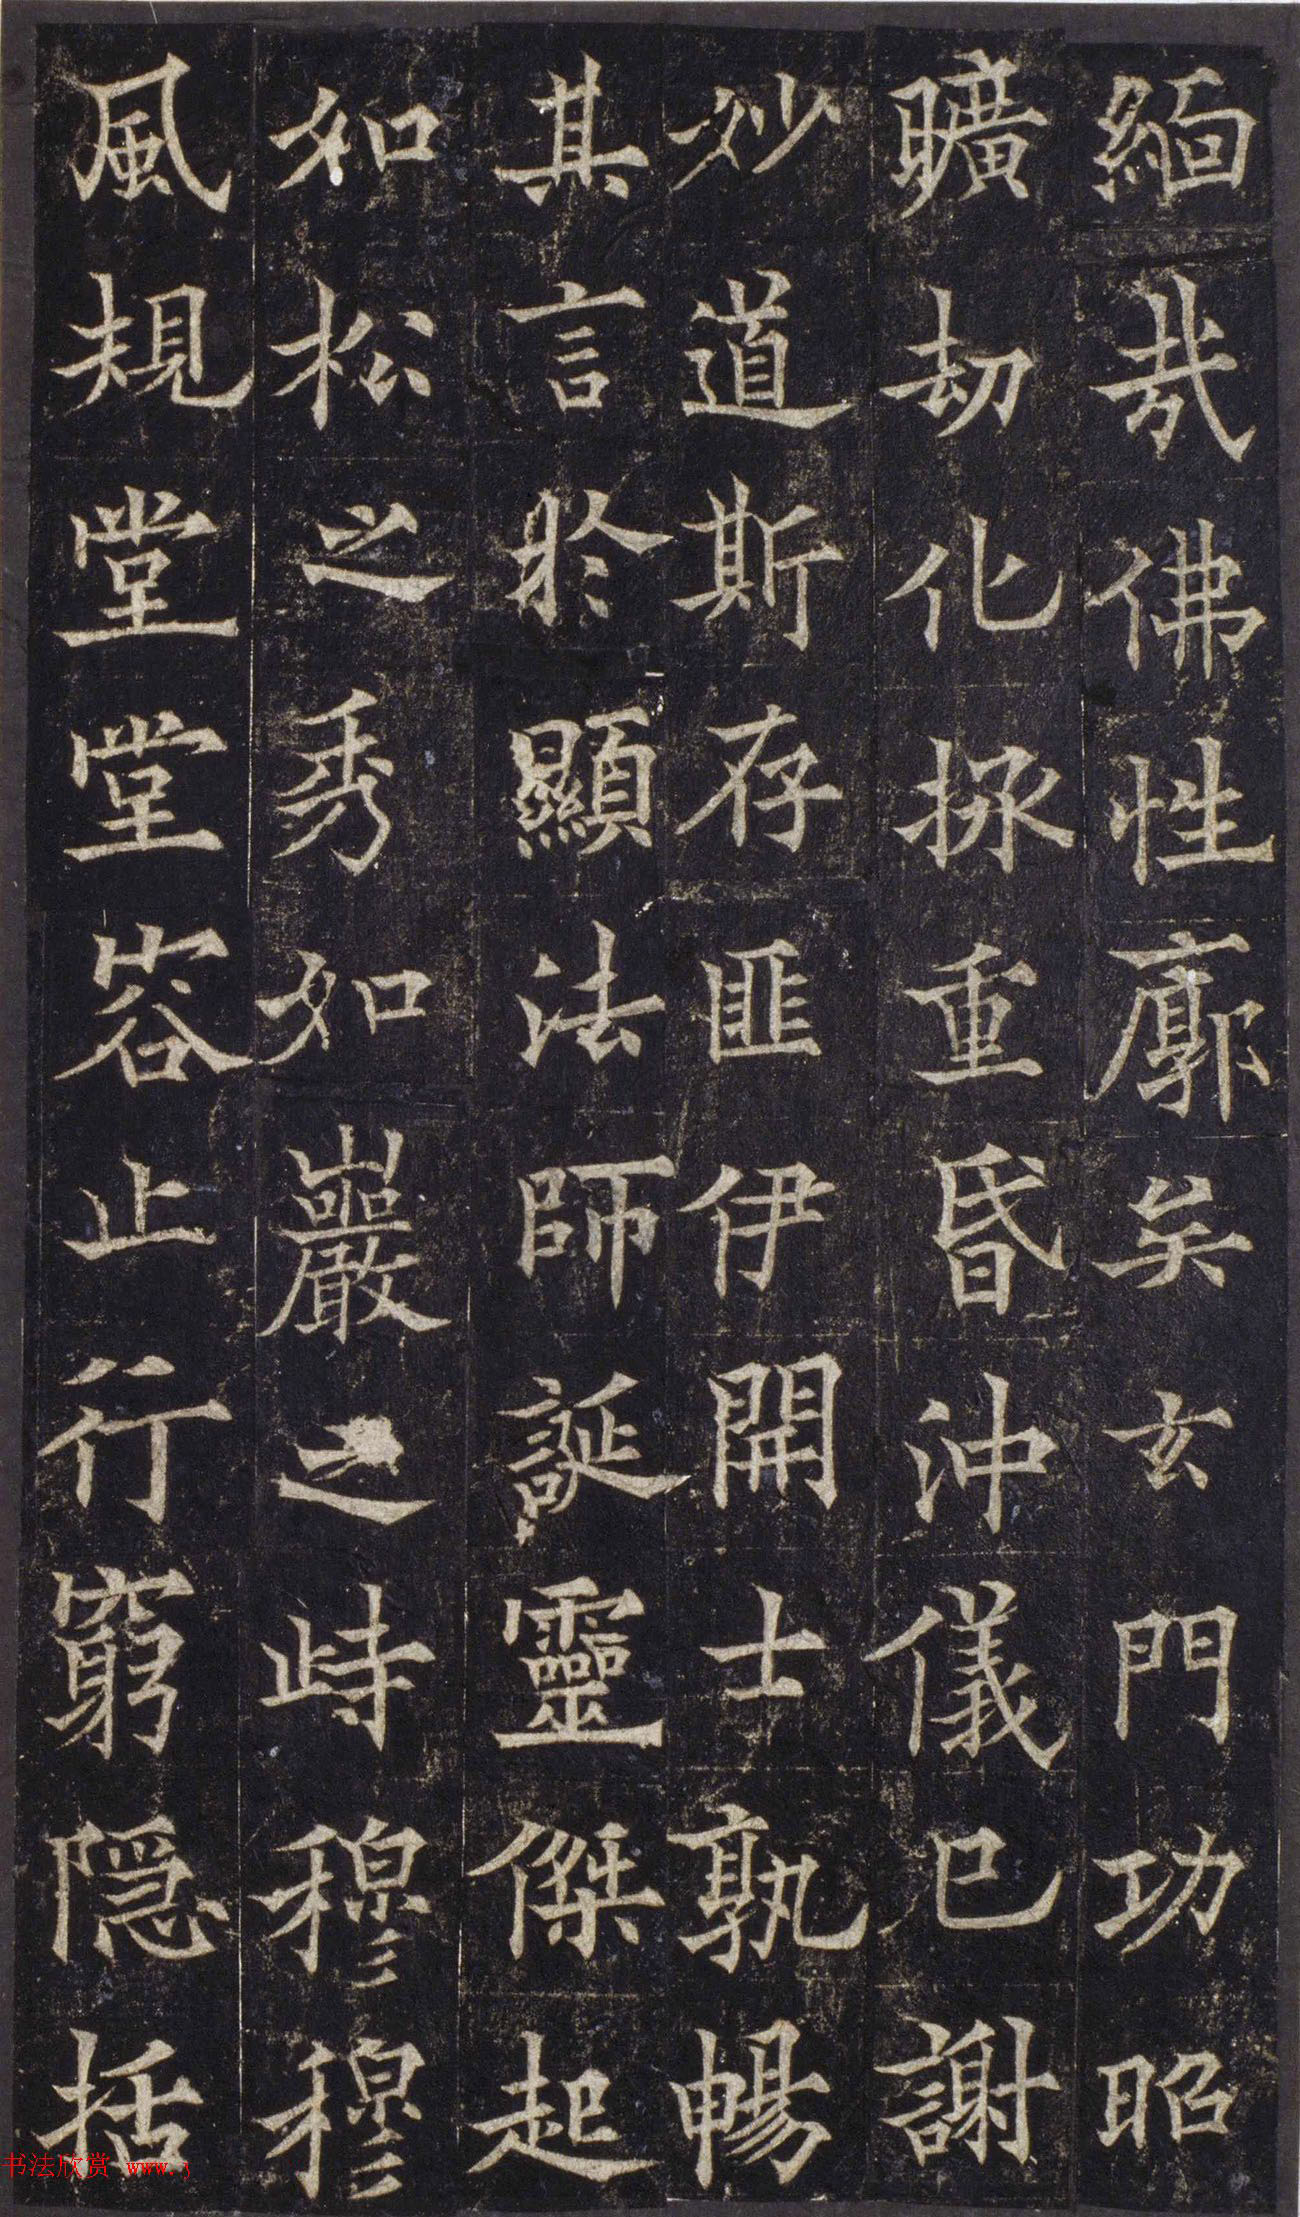 緬哉佛性廓矣玄門功昭
曠劫化拯重昏沖儀已謝
妙道斯存匪伊開士孰暢
其言於顯法師誕靈傑起
如松之秀如巖之峙穆穆
風規堂堂容止行窮隱括
书法欣赏 www.